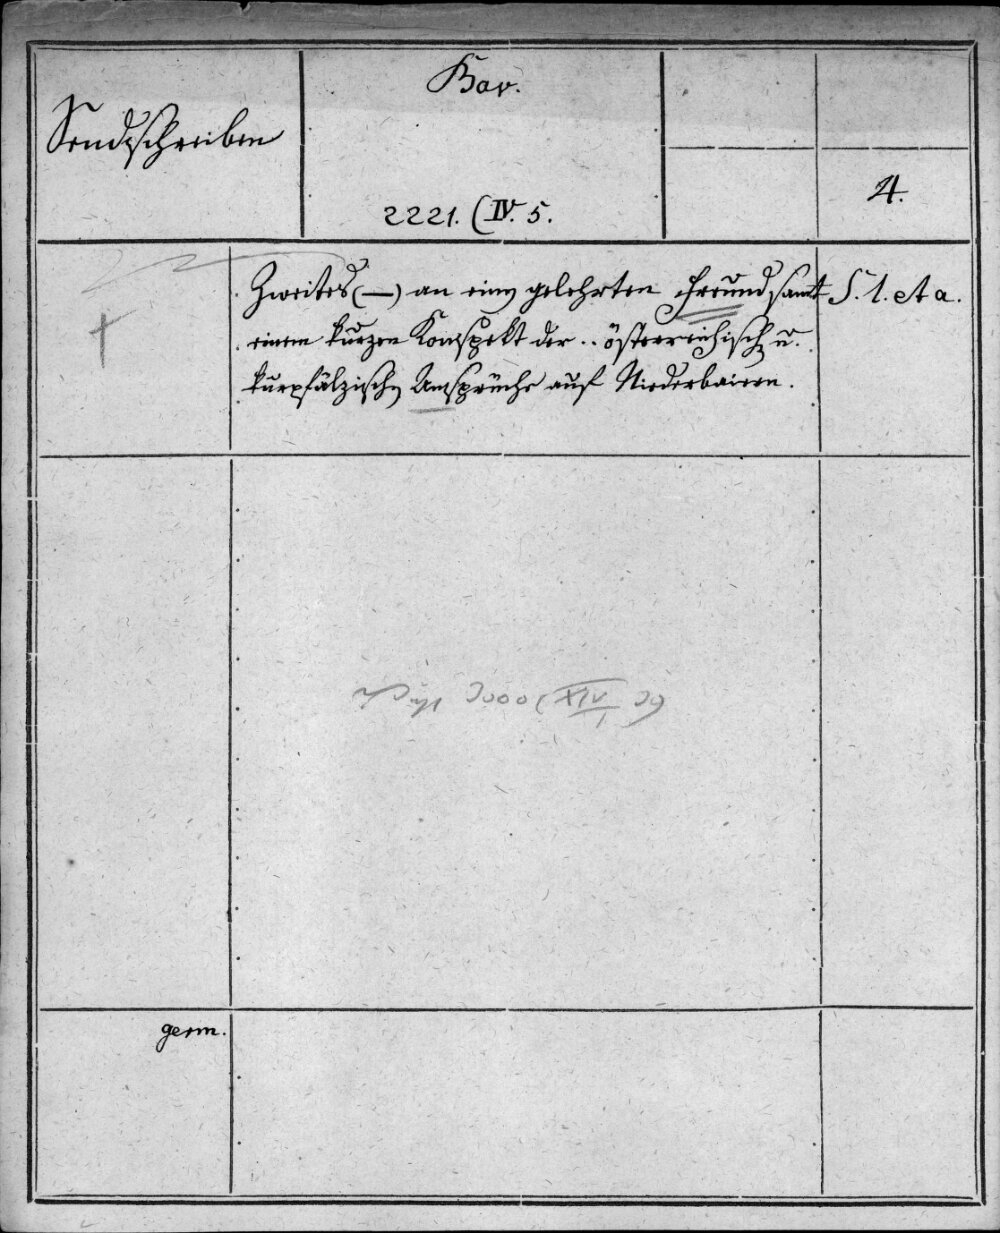 Sendschreiben
Bav.
2221. (IV. 5.
4.
Zweites (—) an einen gelehrten Freund, samt
einem kurzen Konspekt der .. österreichischen u.
kurpfälzischen Ansprüche auf Niederbaiern.
S. l. et a.
(XIV
germ.